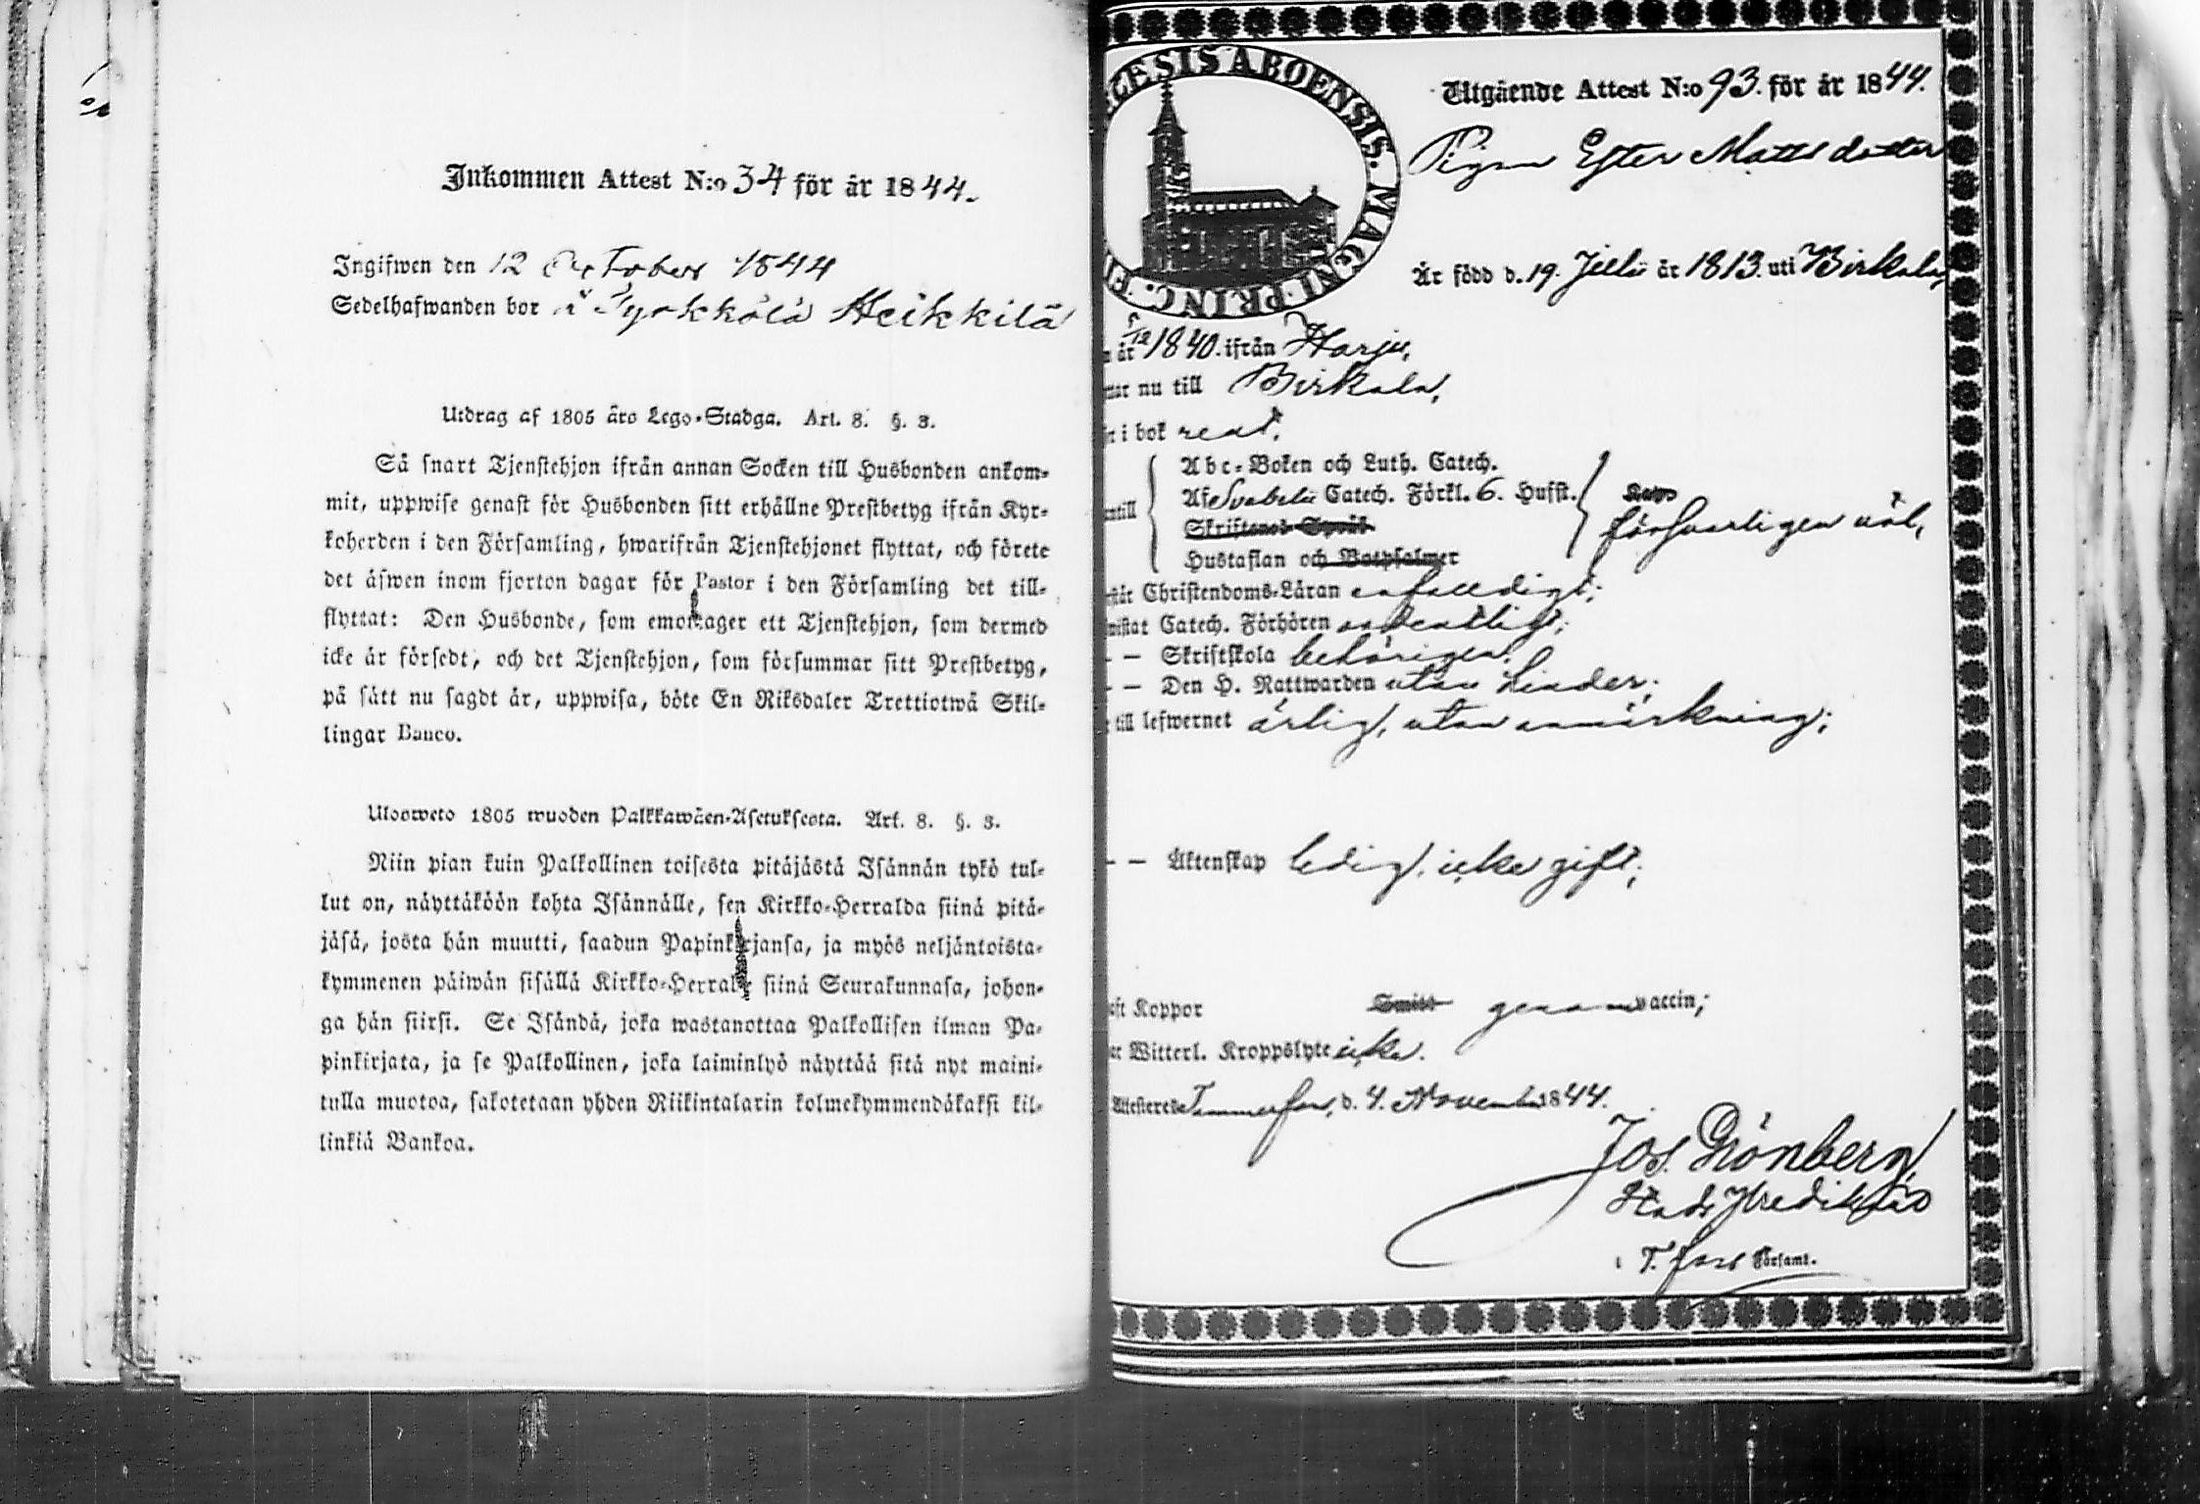 Inkommen Attest N:o 34 för år 1844.
Ingifwen den 12 October 1844
Sedelhafwanden bor å Pyrkkölä Heikkilä
Utdrag af 1805 års Lego-Stadga. Art. 8. §. 3.
Så snart Tjenstehjon ifrån annan Socken till Husbonden ankom-
mit, uppwise genast för Husbonden sitt erhållne Prestbetyg ifrån Kyr-
koherden i den Församling, hwarifrån Tjenstehjonet flyttat, och förete
det äfwen inom fjorton dagar för Pastor i den Församling det till-
flyttat: Den Husbonde, som emottager ett Tjenstehjon, som dermed
icke är försedt, och det Tjenstehjon, som försummar sitt Prestbetyg,
på sätt nu sagdt är, uppwisa, böte En Riksdaler Trettiotwå Skil-
lingar Banco.
Ulosweto 1805 wuoden Palkkawäen-Asetuksesta. Art. 8. §. 3.
Niin pian kuin Palkollinen toisesta pitäjästä Isännän tykö tul-
lut on, näyttäköön kohta Isännälle, sen Kirkko-Herralda siinä pitä-
jäsä, josta hän muutti, saadun Papinkirjansa, ja myös neljäntoista-
kymmenen päiwän sisällä Kirkko-Herralle siinä Seurakunnasa, johon-
ga hän siirsi. Se Isändä, joka wastanottaa Palkollisen ilman Pa-
pinkirjata, ja se Palkollinen, joka laiminlyö näyttää sitä nyt maini-
tulla muotoa, sakotetaan yhden Riikintalarin kolmekymmendäkaksi kil-
linkiä Bankoa.
ECESIS ABOENSIS. MAGNI PRINC. FI
Utgående Attest N:o 93. för år 1844.
Pigan Ester Mattsdotter
Är född d. 19. Julii år 1813. uti Birkala,
år 5/12 1840. ifrån Harju,
nu till Birkala,
i bok rent,
Abc-Boken och Luth. Catech.
Af Svebelii Catech. Förkl. 6. Hufst.
Skriftenes Språk
försvarligen väl,
Hustaflan och Botpsalmer
Christendoms-Läran enfalldigt;
Catech. Förhören ordentligt;
— Skriftskola behörigen;
— Den H. Nattwarden utan hinder;
till lefwernet ärlig, utan anmärkning;
— Äktenskap ledig, icke gift;
Koppor genom vaccin;
Witterl. Kroppslyte icke.
Tammerfors, d. 4. November 1844.
Jos. Grönberg,
Stads Predikant
i T.fors Församl.